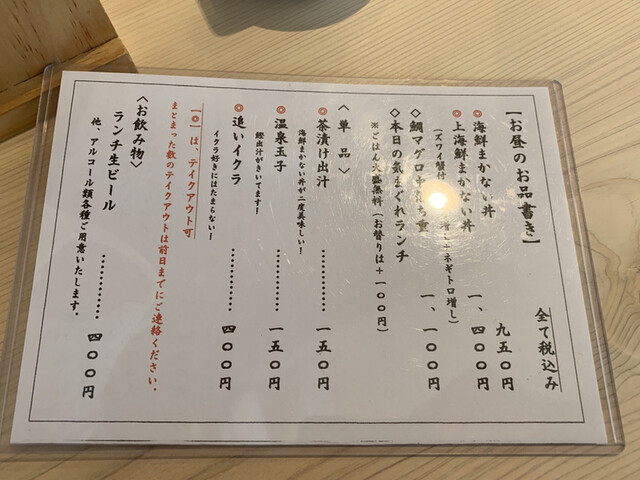 【お昼のお品書き】
全て税込み
◎ 海鮮まかない丼 九五〇円
◎ 上海鮮まかない丼 一、四〇〇円
（ズワイ蟹付 増し ネギトロ増し）
◇ 鯛マグロ 重 一、一〇〇円
◇ 本日の気まぐれランチ
※ごはん大盛無料（お替りは＋一〇〇円）
〈単品〉
◎ 茶漬け出汁 ………… 一五〇円
海鮮まかない丼が二度美味しい！
◎ 温泉玉子 ………… 一五〇円
鰹出汁がきいてます！
◎ 追いイクラ ………… 四〇〇円
イクラ好きにはたまらない！
【◎】は、テイクアウト可
まとまった数のテイクアウトは前日までにご連絡ください。
〈お飲み物〉
ランチ生ビール ………… 四〇〇円
他、アルコール類各種ご用意いたします。